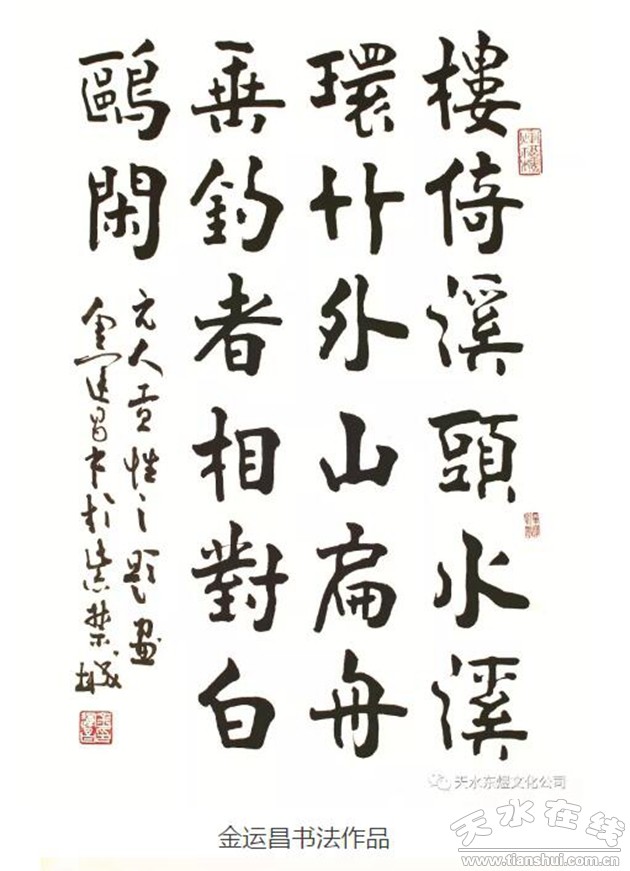 樓倚溪頭水溪
環竹外山扁舟
垂釣者相對白
鷗閑
元人貢性之題畫
金運昌書於紫禁城
天水东煜文化公司
金运昌书法作品
天水在线
www.tianshui.com.cn